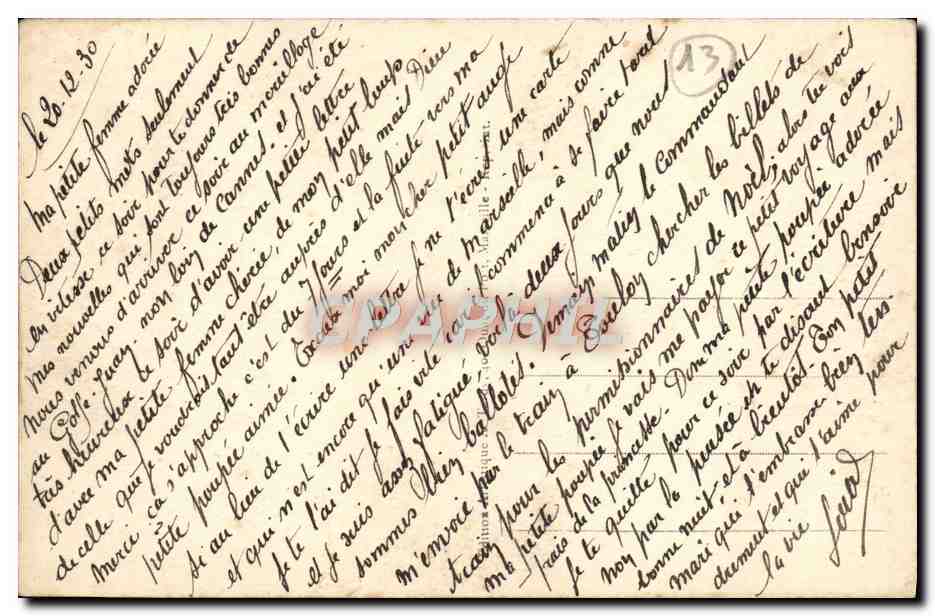 le 20-12-30
13
Ma petite femme adorée
Deux petits mots seulement
en vitesse ce soir pour te donner de
mes nouvelles qui sont toujours très bonnes
nous venons d'arriver ce soir au mouillage
au Golfe Juan non loin de Cannes. et j'ai été
très heureux le soir d'avoir une petite lettre
d'avec ma petite femme chérie, de mon petit loup
de celle que je voudrais tant être auprès d'elle mais Dieu
merci ça s'approche c'est du jours et la fuite vers ma
petite poupée aimée. mon cher petit ange
si au lieu de t'écrire une lettre je ne t'écris une carte
et qui n'est encore qu'une vue de Marseille, mais comme
je te l'ai dit je fais vite car il commence à se faire tard
et je suis assez fatigué voilà deux jours que nous
sommes bien ballotés. Demain matin le Commandant
m'envoie par le train à Toulon chercher les billets de
train pour les permissionnaires de Noël, alors tu vois
ma petite poupée je vais me payer ce petit voyage aux
frais de la princesse. Dis-moi petite poupée adorée
je te quitte pour ce soir par l'écriture mais
non par la pensée en te disant bonsoir
bonne nuit et à bientôt. Ton petit
mari qui t'embrasse bien ten-
drement et qui t'aime pour
la vie
CPAPHIL